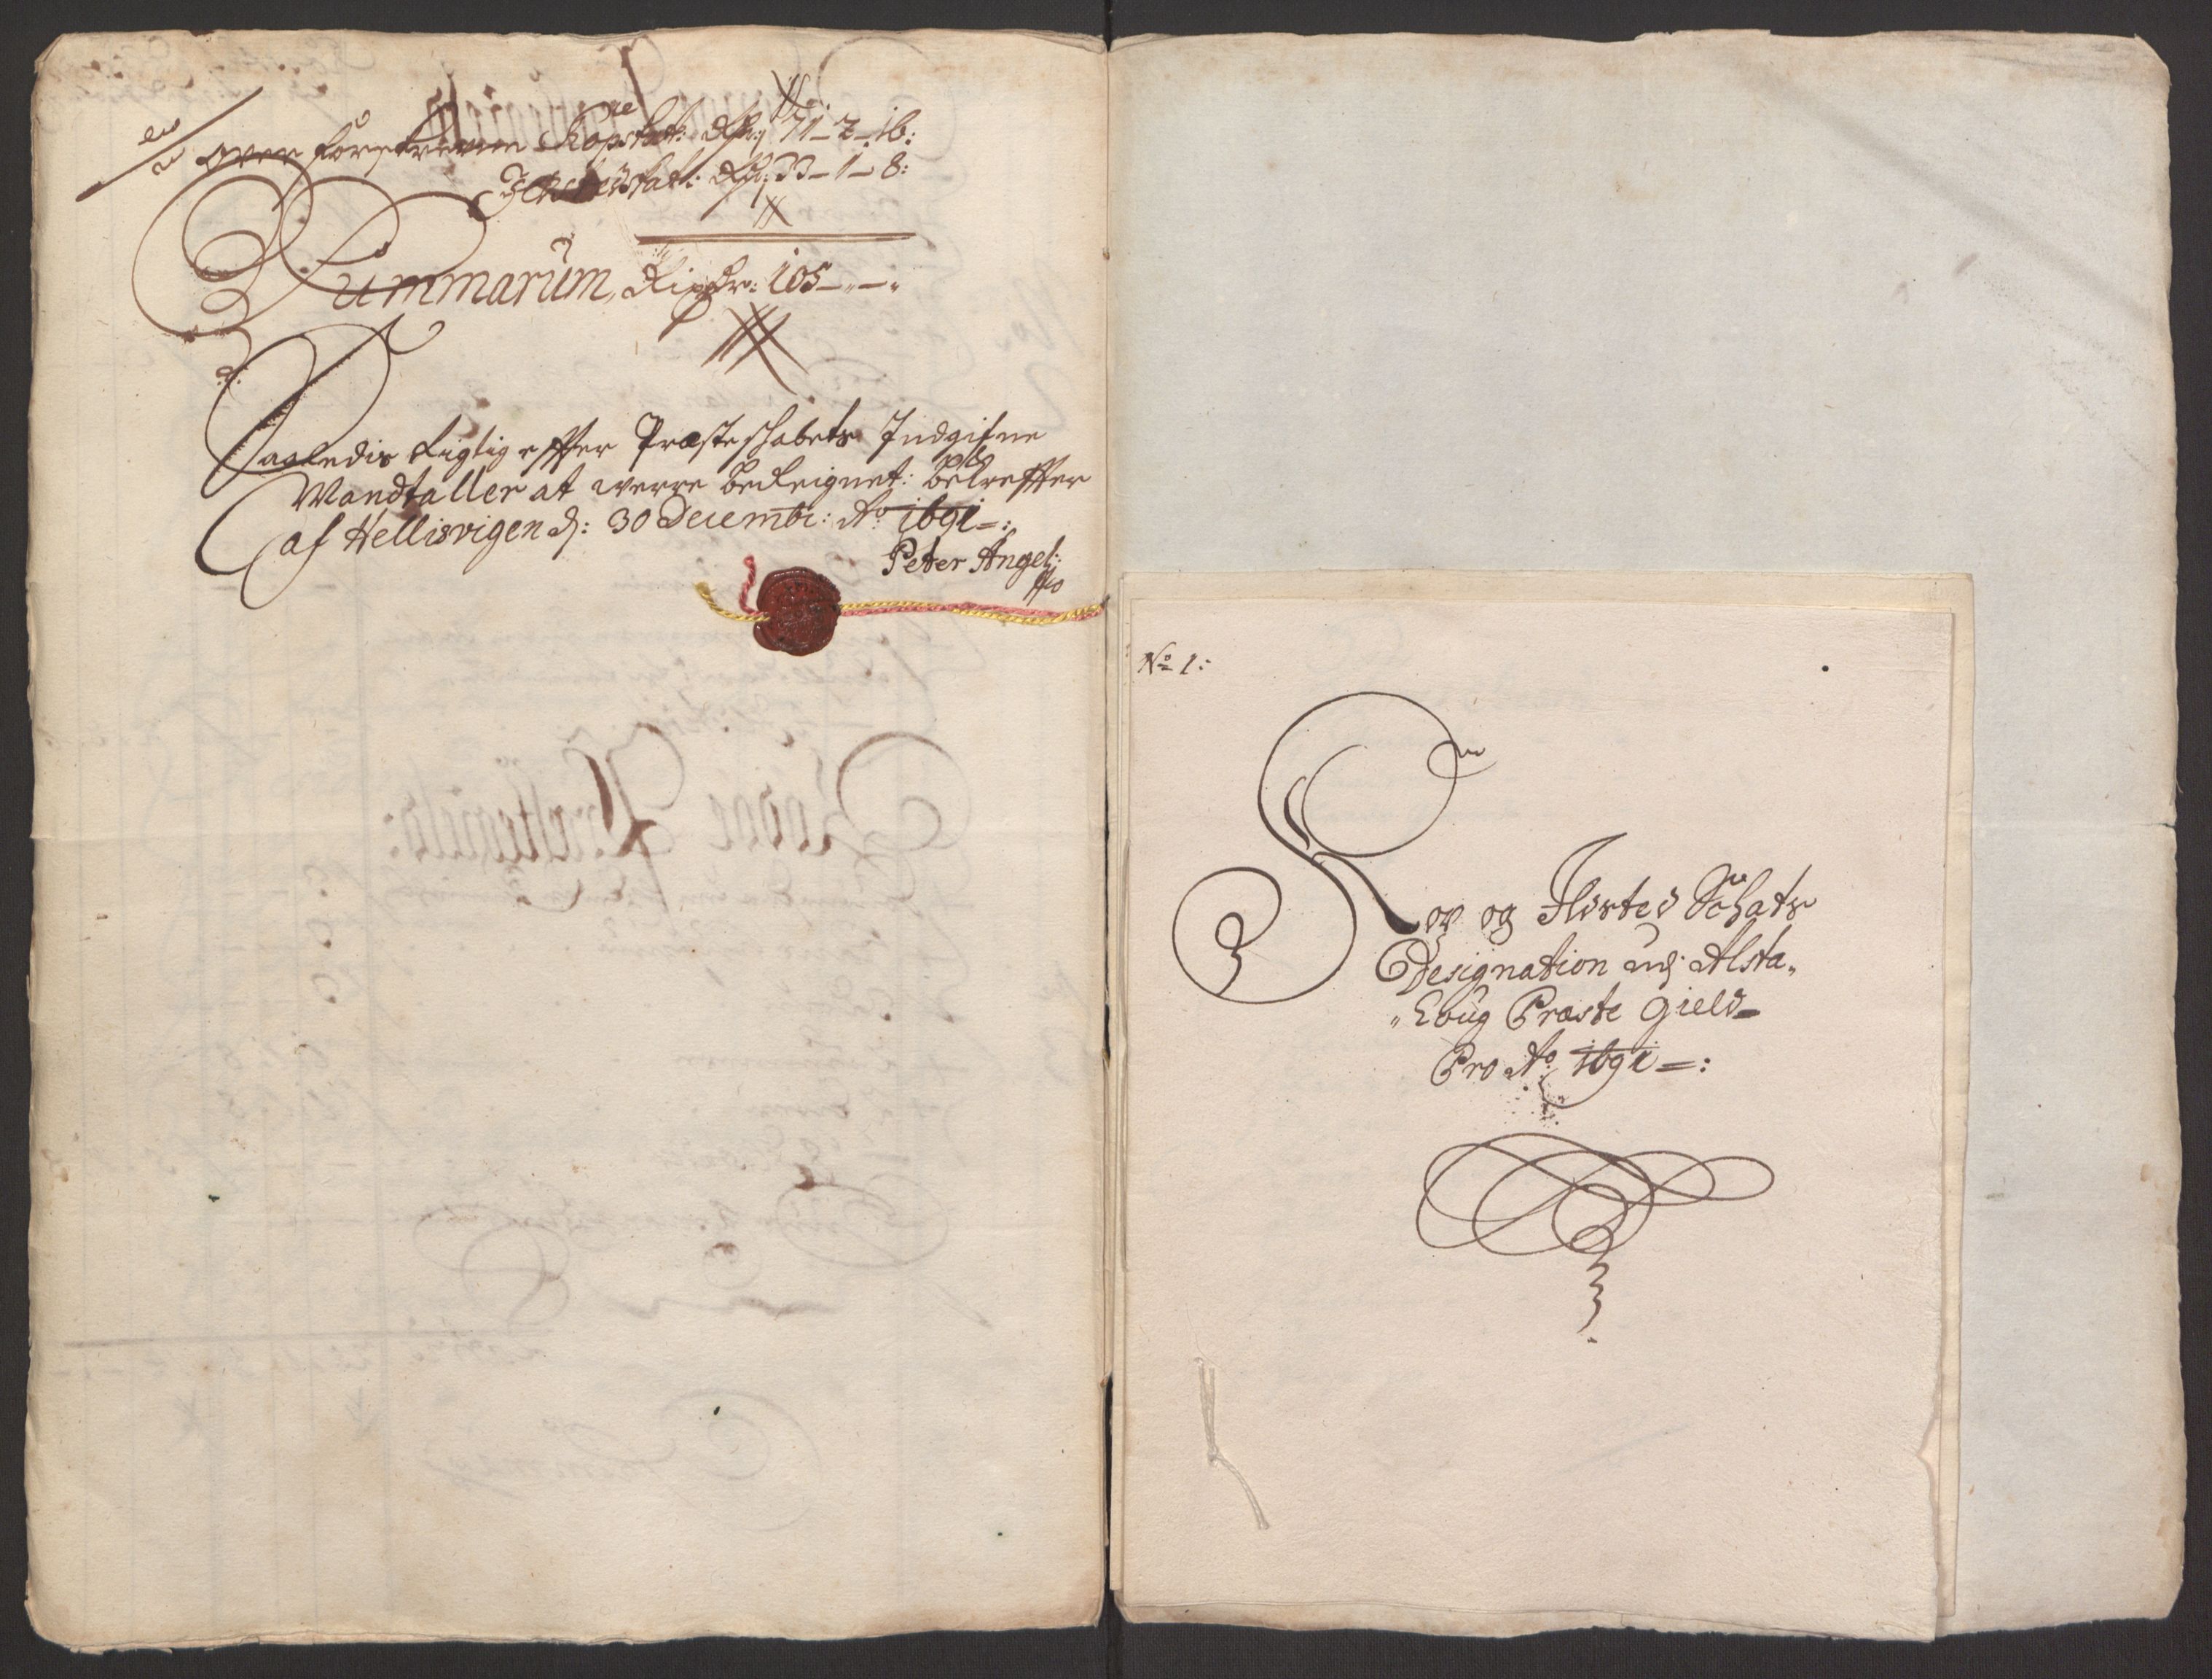 over forskrevene Kopskat: Rdr 71 - 2 - 16:
Ildstedskat: Rdr 33 - 1 - 8:
Summarum, Rixdr: 105 - " - "
Saaledis Rigtig effter Præsteschabets Indgifne
Mandtaller at werre bereignet: bekreffter
af Hellisvigen d: 30 Decembr: Ao 1691 =:
Peter Angel:
No 1:
Kop og Ildsted Schats
Designation udj Alsta„
„houg Præste gield
Pro Ao 1691 =: